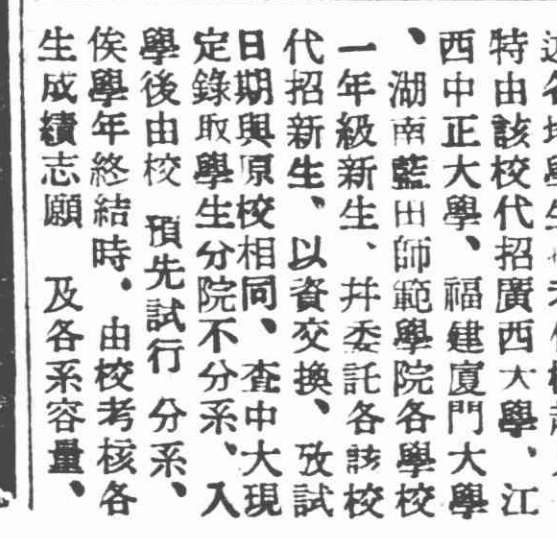 特由該校代招廣西大學、江
西中正大學、福建廈門大學
、湖南藍田師範學院各學校
一年級新生、幷委託各該校
代招新生、以資交換、攷試
日期與原校相同、查中大現
定錄取學生分院不分系、入
學後由校 預先試行 分系、
俟學年終結時。由校考核各
生成績志願 及各系容量、